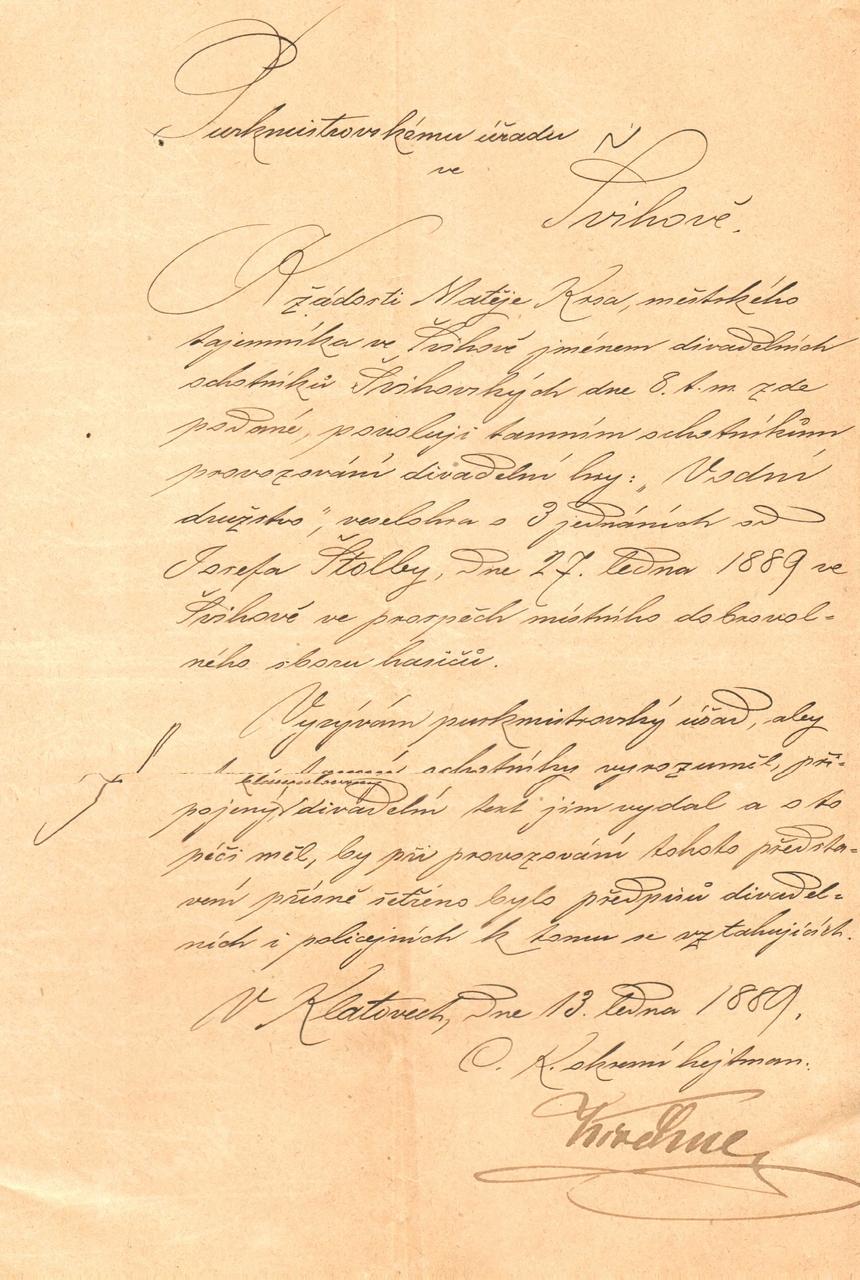 Purkmistrovskému úřadu
ve
Švihově.
K žádosti Matěje Krsa, městského
tajemníka ve Švihově jménem divadelních
ochotníků Švihovských dne 8. t. m. zde
podané, povoluji tamním ochotníkům
provozování divadelní hry: „Vodní
družstvo", veselohra o 3 jednáních od
Josefa Štolby, dne 27. ledna 1889 ve
Švihově ve prospěch místního dobrovol-
ného sboru hasičů.
Vyzývám purkmistrovský úřad, aby
ochotníky vyrozuměl, při-
pojený divadelní text jim vydal a o to
péči měl, by při provozování tohoto předsta-
vení přísně šetřeno bylo předpisů divadel-
ních i policejních k tomu se vztahujících.
V Klatovech, dne 13. ledna 1889.
C. K. okresní hejtman: